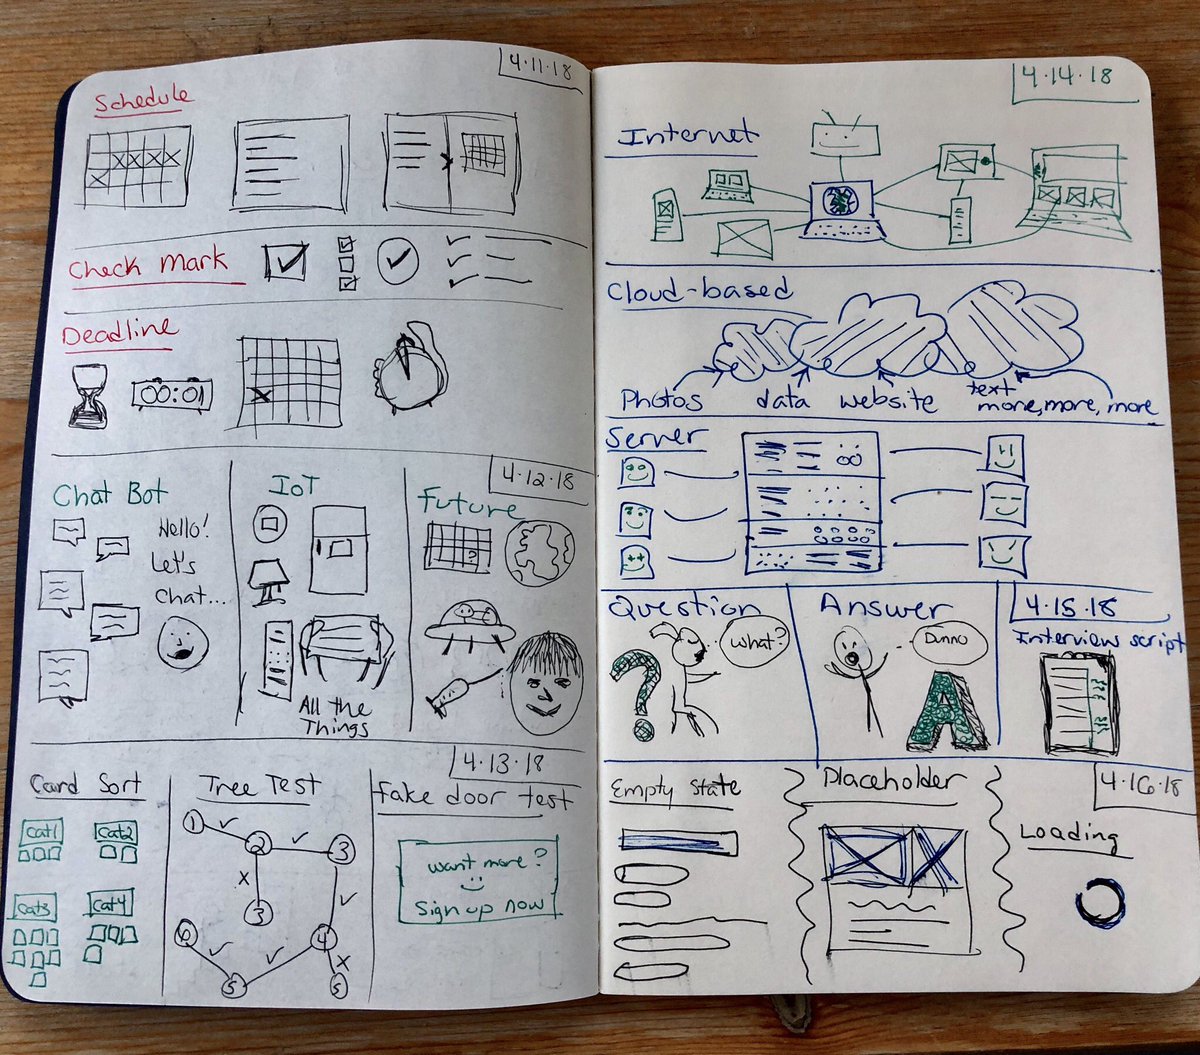 4.11.18
Schedule
Check mark
Deadline
00:01
4.12.18
Chat Bot
Hello!
Let's
chat...
IoT
All the
Things
Future
?
4.13.18
Card Sort
Cat1
Cat2
Cat3
Cat4
Tree Test
1
2
3
3
4
5
6
5
fake door test
want more?
Sign up now
4.14.18
Internet
Cloud-based
Photos
data
website
text
more, more, more
Server
Question
What?
?
Answer
Dunno
A
4.15.18
Interview script
Empty state
Placeholder
4.16.18
Loading